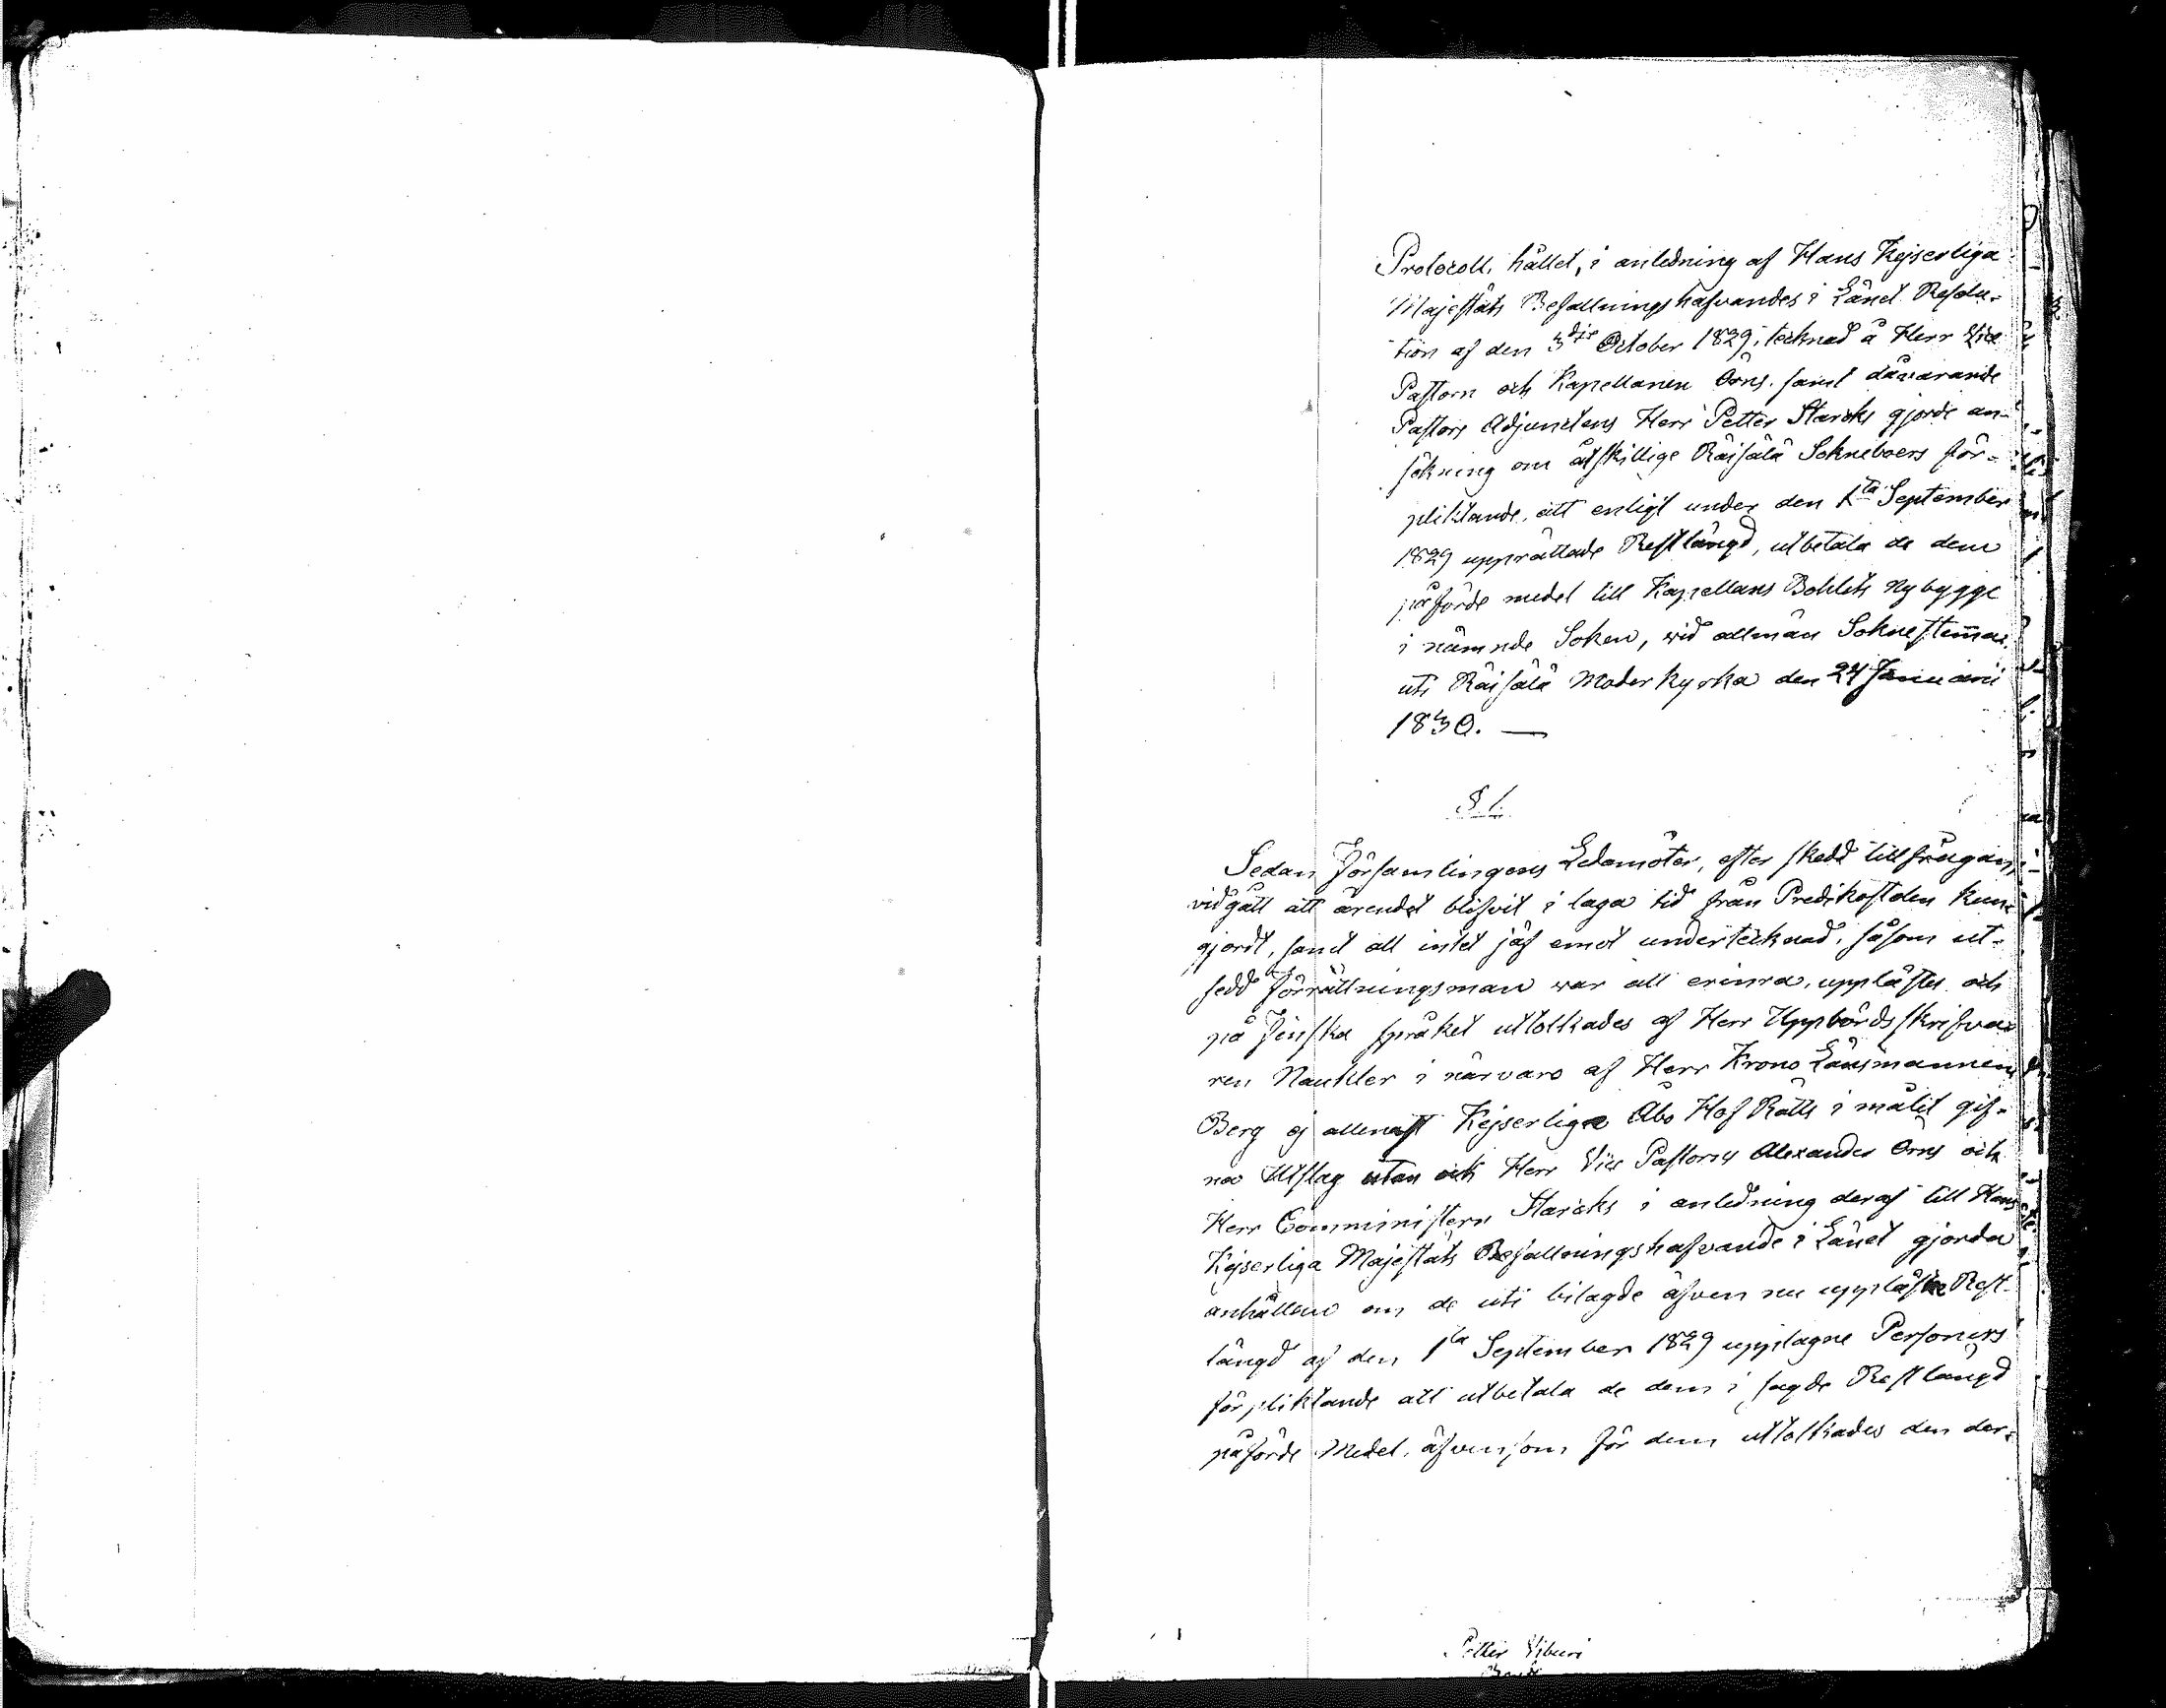 Protocoll, hållet, i anledning af Hans Kejserliga
Majestäts Befallningshafvandes i Länet Resolu-
tion af den 3dje October 1829, tecknad å Herr Vice
Pastorn och Kapellanen Orns, samt dåvarande
Pastors Adjunctens Herr Petter Starcks gjorde an-
sökning om åtskillige Räisälä Sokneboers för-
pliktande, att enligt under den 1ta September
1829 upprättade Restlängd, utbetala de dem
påförde medel till Kapellans Bohlets Nybygge
i nämnde Soken, wid allmän Soknestemma
uti Räisälä Moderkyrka den 24 Januarii
1830. —
§ 1.
Sedan Församlingens Ledamöter, efter skedd tillfrågan,
vidgått att ärendet blifvit i laga tid från Predikostolen kun-
gjordt, samt att intet jäf emot undertecknad, såsom ut-
sedd Förrättningsman war att erinra, upplästes och
på Finska språket uttolkades af Herr Uppbördsskrifva-
ren Naukler i närvaro af Herr Krono Länsmannen
Berg ej allenast Kejserliga Åbo Hof Rätts i målet gif-
na Utslag utan ock Herr Vice Pastorns Alexander Orns och
Herr Comministern Starcks i anledning deraf till Hans
Kejserliga Majestäts Befallningshafvande i Länet gjorda
anhållan om de uti bilagde äfven nu uppläste Rest-
längd af den 1ta September 1829 upptagne Personers
förpliktande att utbetala de dem i sagde Restlängd
påförde Medel, äfvensom för dem uttolkades den der-
Petter